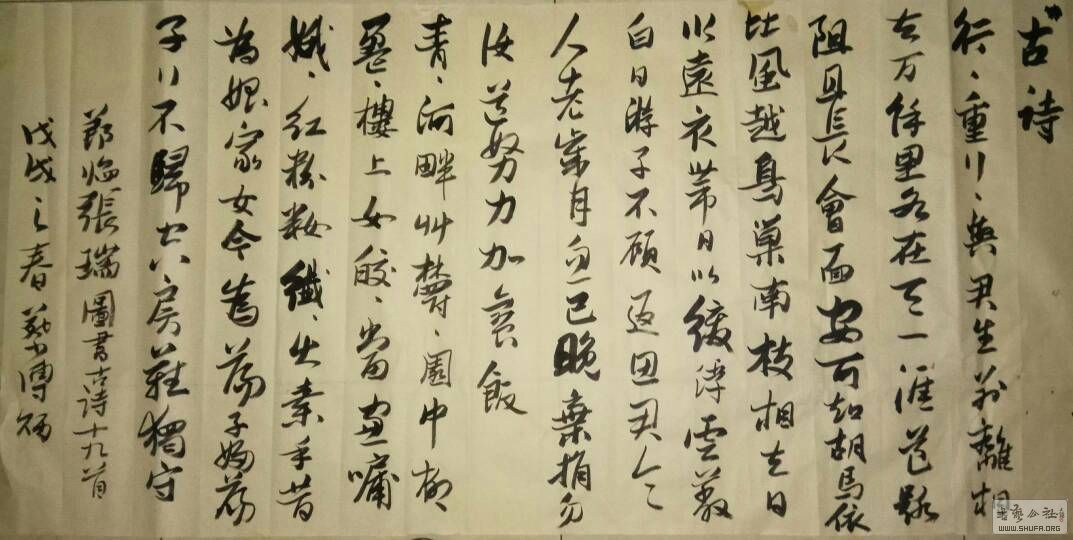 古诗
行〻重行〻與君生别離相
去万餘里各在天一涯道路
阻且長會面安可知胡馬依
北風越鳥巢南枝相去日
以遠衣帶日以緩浮雲蔽
白日遊子不顧返思君令
人老歲月忽已晚棄捐勿
復道努力加餐飯
青〻河畔艸鬱〻園中柳
盈〻樓上女皎〻當窗牖
娥〻紅粉妝纖〻出素手昔
為娼家女今為蕩子婦蕩
子行不歸空房難獨守
節臨張瑞圖書古诗十九首
戊戌之春
书艺公社
WWW.SHUFA.ORG